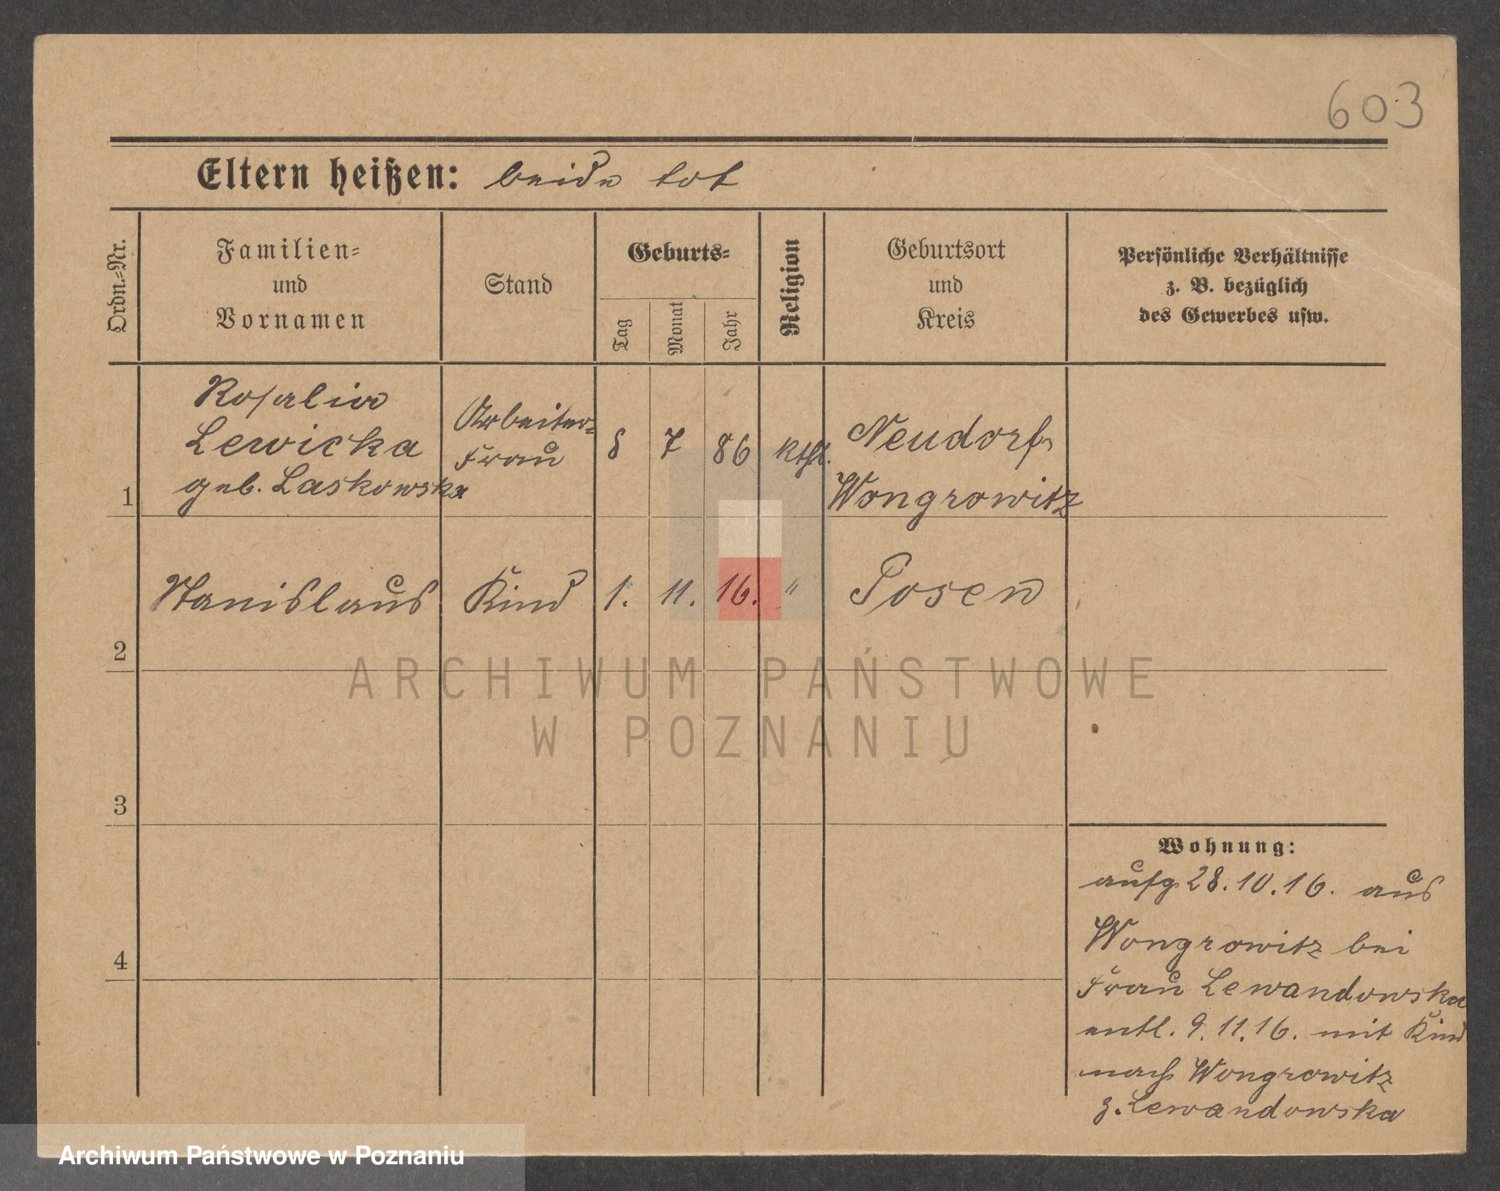 603
Eltern heißen: beide tot
Ordn.-Nr.
Familien-
und
Vornamen
Stand
Geburts-
Tag
Monat
Jahr
Religion
Geburtsort
und
Kreis
Persönliche Verhältnisse
z. B. bezüglich
des Gewerbes usw.
Rosalia
Lewicka
geb. Laskowska
1
Arbeiter-
Frau
8
7
86
Kthl.
Neudorf
Wongrowitz
Stanislaus
Kind
1.
11.
16.
"
Posen
2
ARCHIWUM PAŃSTWOWE
W POZNANIU
3
4
Wohnung:
aufg 28.10.16. aus
Wongrowitz bei
Frau Lewandowska
entl. 9.11.16. mit Kind
nach Wongrowitz
z. Lewandowska
Archiwum Państwowe w Poznaniu